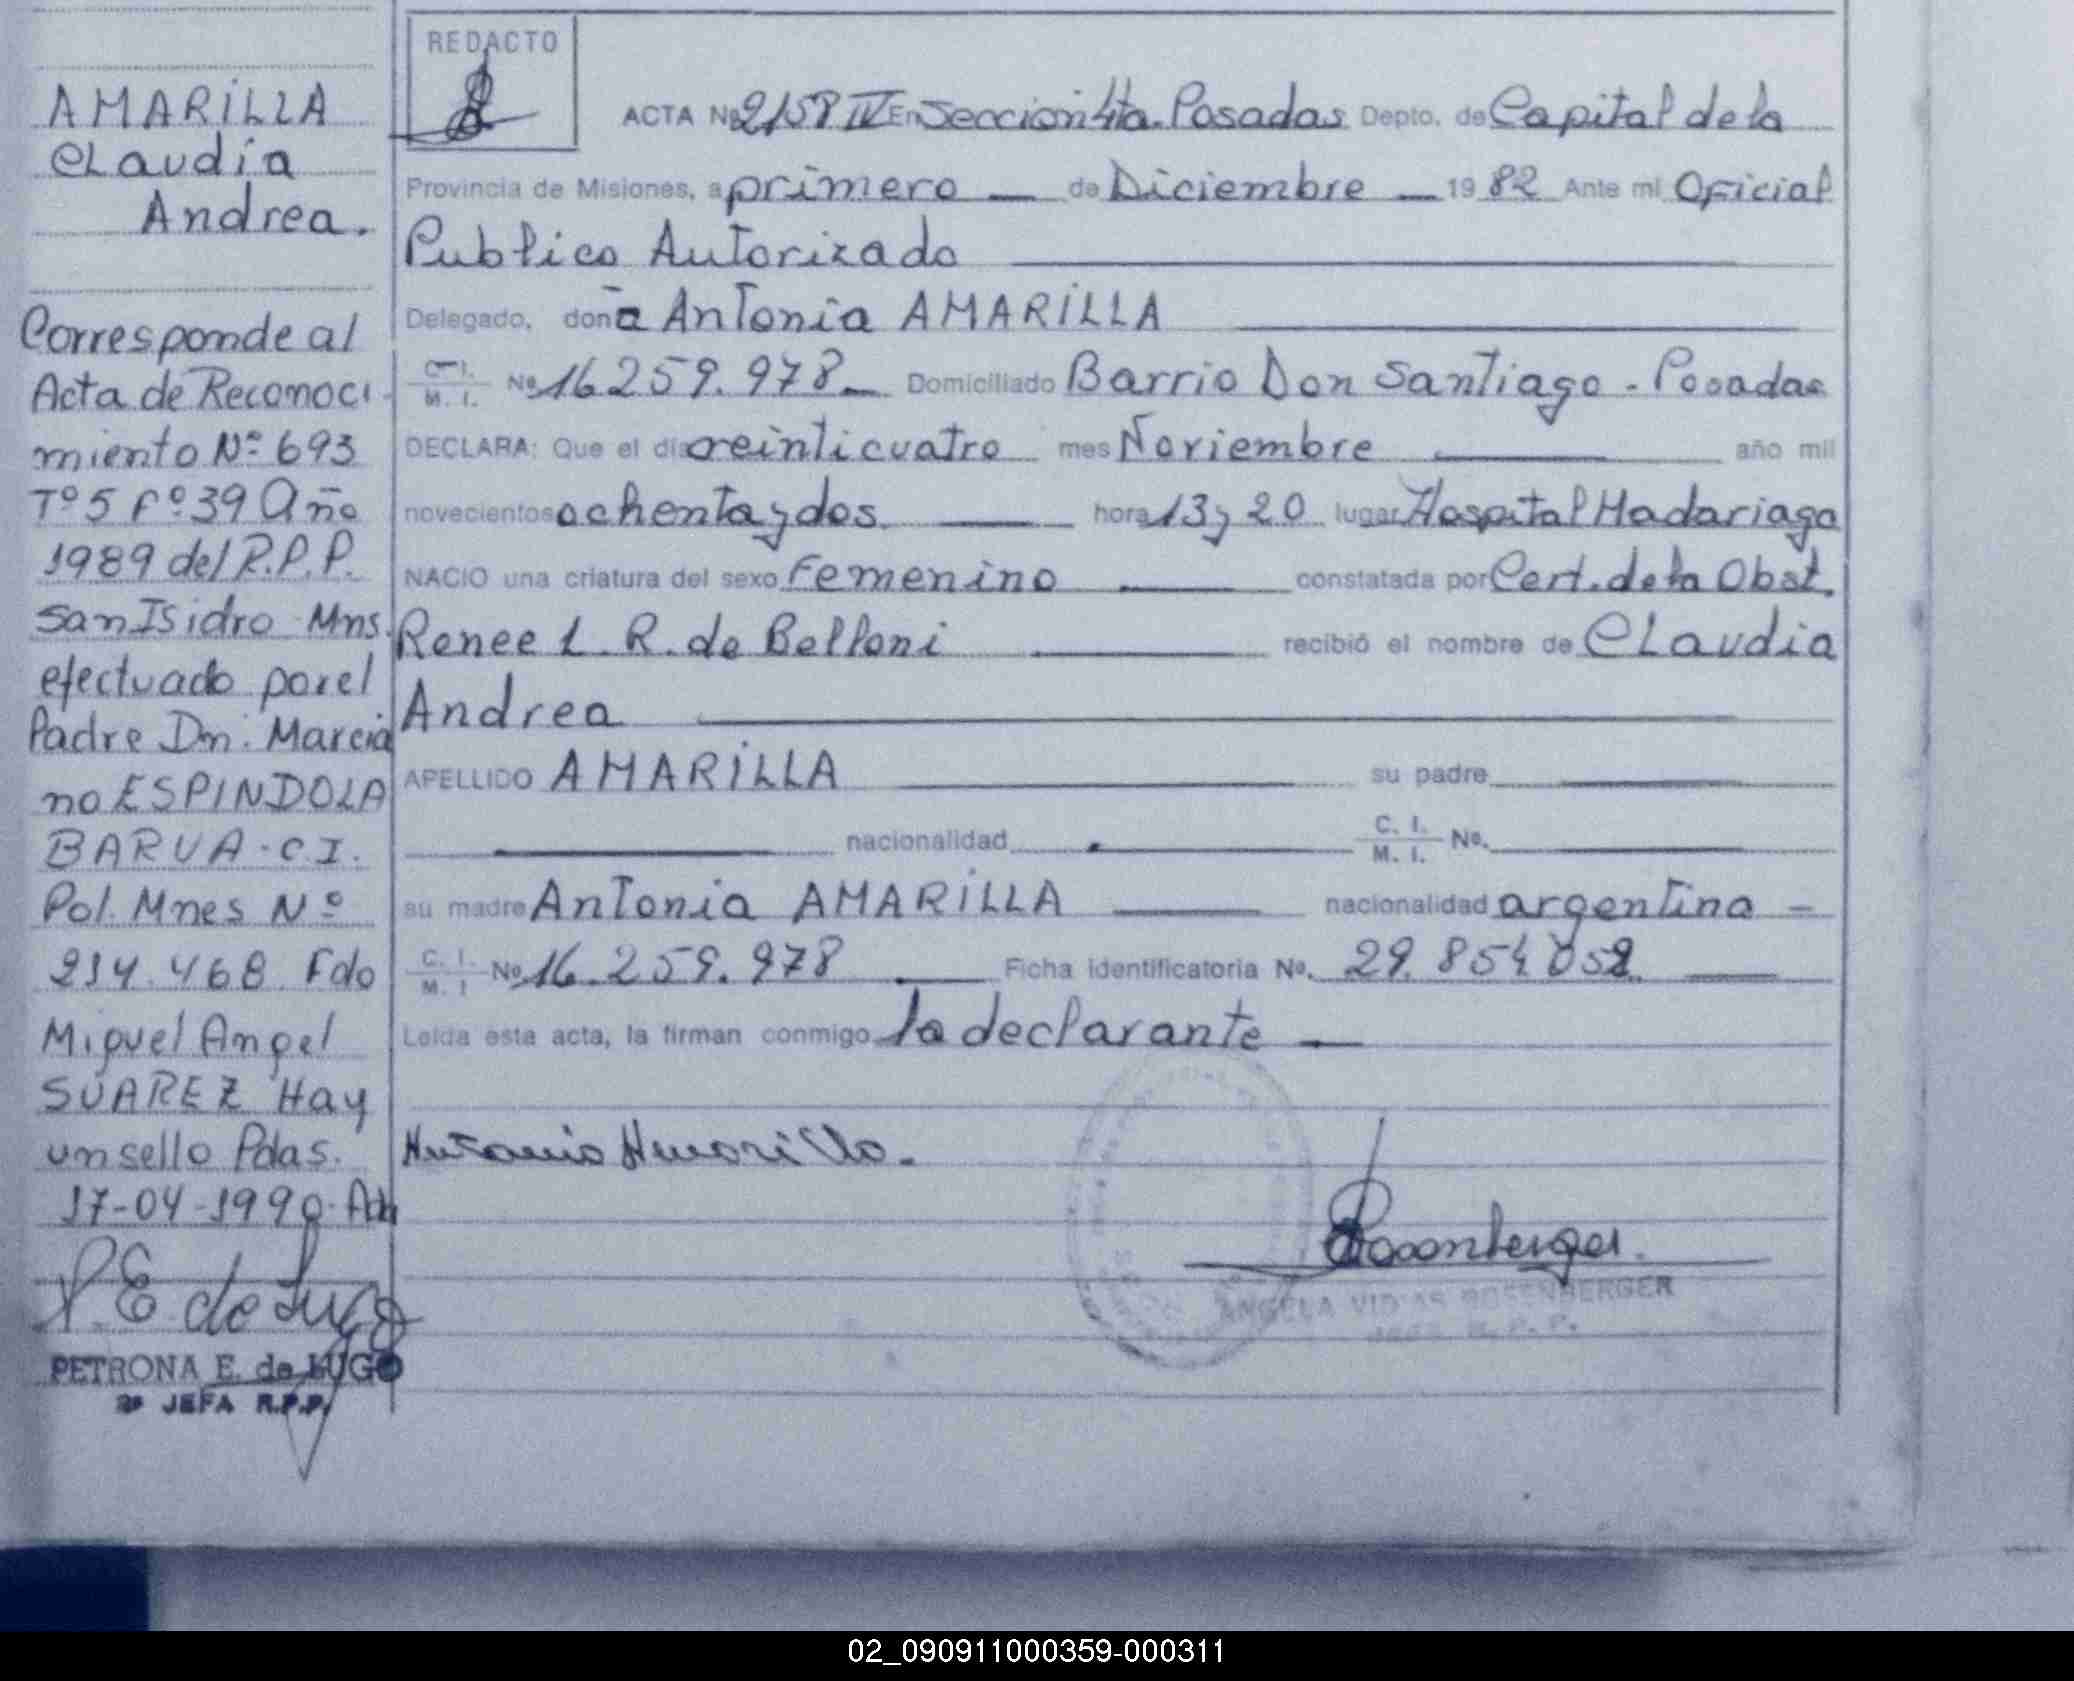 AMARILLA
CLaudia
Andrea.
Corresponde al
Acta de Reconoci
miento Nº 693
Tº 5 Fº 39 Año
1989 del R.P.P.
San Isidro Mns.
efectuado por el
Padre Dn. Marcia
no ESPINDOLA
BARUA - C I.
Pol. Mnes Nº
214.468 Fdo
Miguel Angel
SUAREZ Hay
un sello Pdas.
17-04-1990.
P. E. de Lugo
PETRONA E. de LUGO
2º JEFA R.P.P.
REDACTO
ACTA Nº 2158 IV En Seccion 4ta. Posadas Depto. de Capital de la
Provincia de Misiones, a primero de Diciembre 1982 Ante mi Oficial
Publico Autorizado
Delegado, doña Antonia AMARILLA
C. I. M. I. Nº 16.259.978 Domiciliado Barrio Don Santiago - Posadas
DECLARA: Que el día veinticuatro mes Noviembre año mil
novecientos ochenta y dos hora 13 y 20 lugar Hospital Madariaga
NACIO una criatura del sexo Femenino constatada por Cert. de la Obst.
Renee L. R. de Belloni recibió el nombre de CLaudia
Andrea
APELLIDO AMARILLA su padre
nacionalidad C. I. M. I. No.
su madre Antonia AMARILLA nacionalidad argentina -
C. I. M. I Nº 16.259.978 Ficha identificatoria No. 29.854.052
Leída esta acta, la firman conmigo la declarante
Antonia Amarilla.
Rosenberger.
ANGELA VIDAS ROSENBERGER
JEFA R. P. P.
02_090911000359-000311